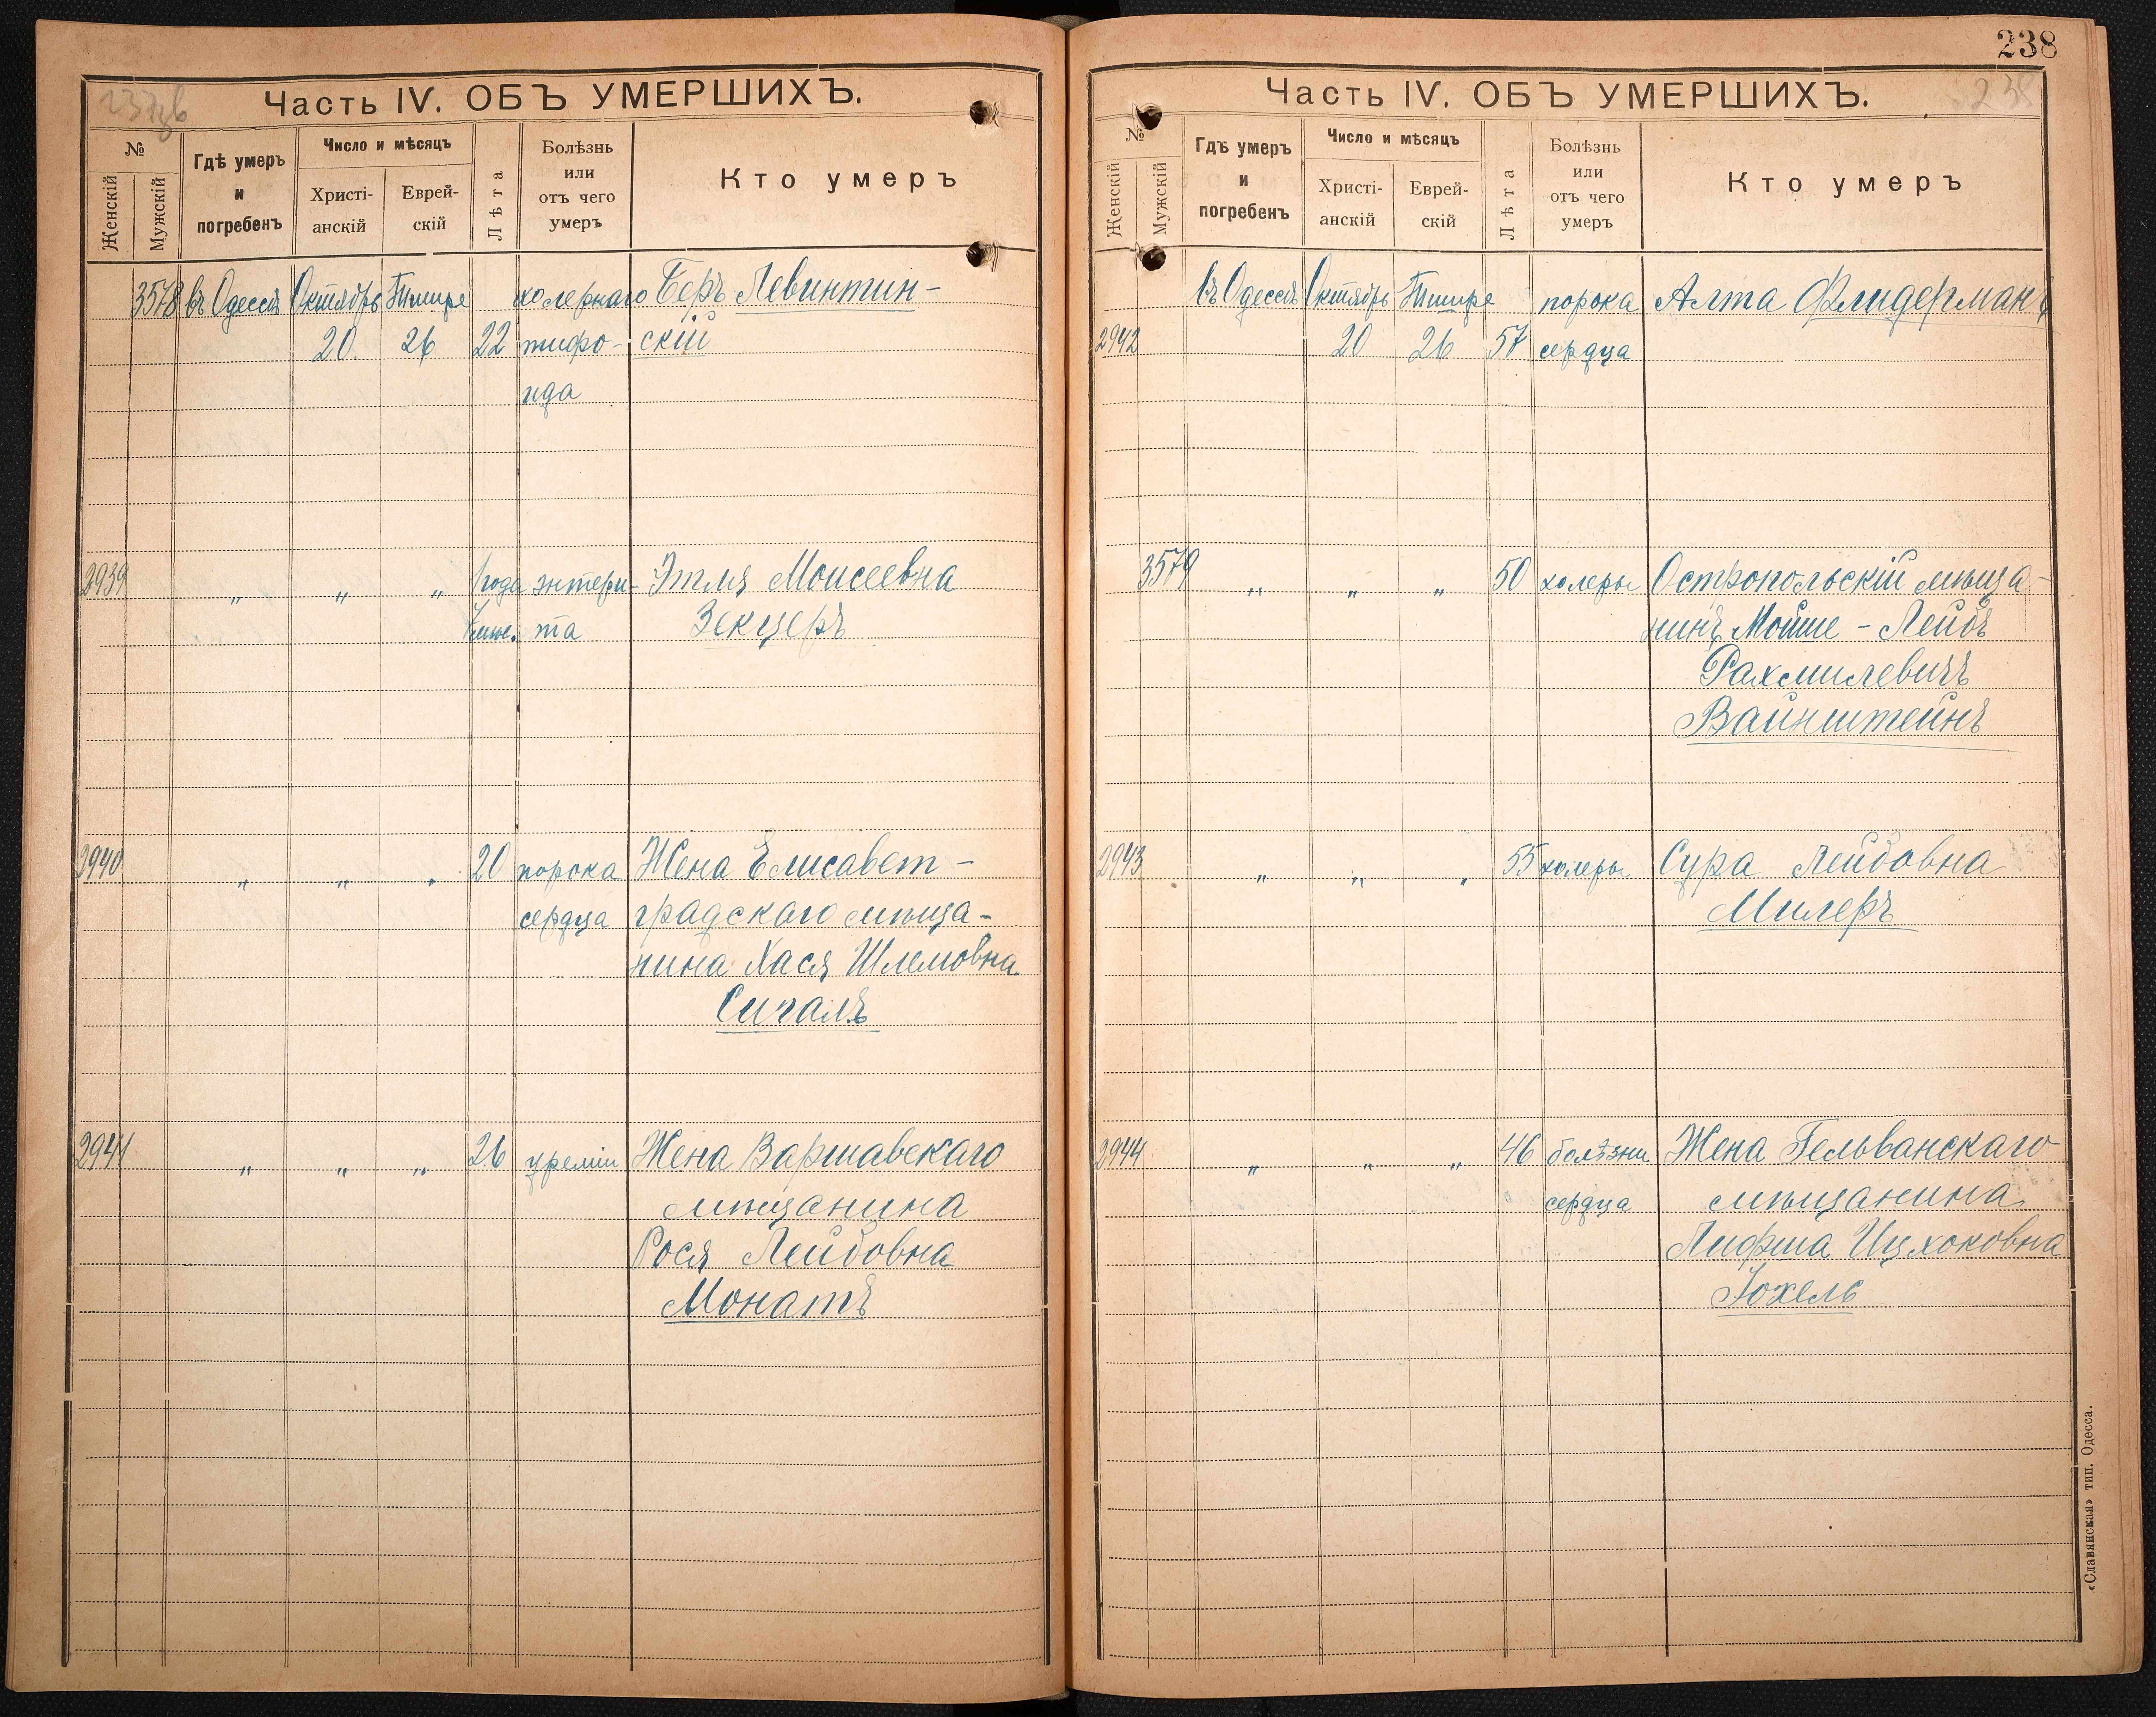 Часть IV. ОБЪ УМЕРШИХЪ.
№
Женскій
Мужскій
Гдѣ умеръ
и
погребенъ
Число и мѣсяцъ
Христі-
анскій
Еврей-
скій
Лѣта
Болѣзнь
или
отъ чего
умеръ
Кто умеръ
3578 въ Одессѣ Октябрь Тишре холернаго Беръ Левинтин-
20 26 22 тифо- скій
ида
2939 „ „ „ 1 года энтери- Этля Моисеевна
та Зекцеръ
2940 „ „ „ 20 порока Жена Елисавет-
сердца градскаго мѣща-
нина Хася Шлемовна
Сигалъ
2941 „ „ „ 26 уреміи Жена Варшавскаго
мѣщанина
Рося Лейбовна
Монатъ
238
Часть IV. ОБЪ УМЕРШИХЪ.
№
Женскій
Мужскій
Гдѣ умеръ
и
погребенъ
Число и мѣсяцъ
Христі-
анскій
Еврей-
скій
Лѣта
Болѣзнь
или
отъ чего
умеръ
Кто умеръ
въ Одессѣ Октябрь Тишре порока Алта Флидерманъ
2942 20 26 57 сердца
3579 „ „ „ 50 холеры Остропольскій мѣща-
нинъ Мойше-Лейбъ
Рахмилевичъ
Вайнштейнъ
2943 „ „ „ 55 холеры Сура Лейбовна
Милеръ
2944 „ „ „ 46 болѣзни Жена Гельванскаго
сердца мѣщанина
Лифша Ицхоковна
Іохель
«Славянская» тип. Одесса.